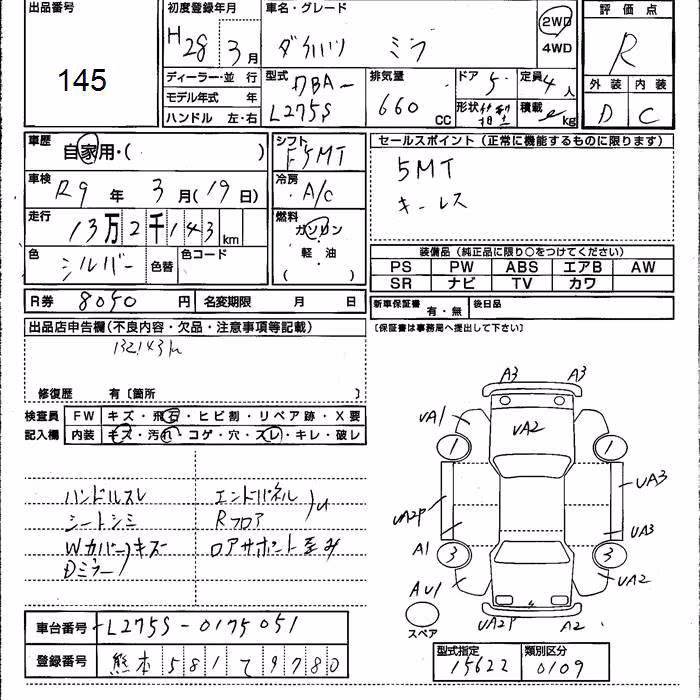 出品番号 145
初度登録年月 H28年3月
車名・グレード ダイハツ ミラ
2WD
4WD
評価点 R
外装 D 内装 C
ディーラー・並行
モデル年式 年
ハンドル 左・右
型式 DBA-L275S
排気量 660 CC
ドア 5
定員 4人
形状
積載 kg
車歴 自家用・( )
シフト F5MT
セールスポイント(正常に機能するものに限ります)
5MT
キーレス
車検 R9年3月(19日)
冷房 A/C
走行 13万2千143km
燃料 ガソリン
軽油
( )
色 シルバー 色替 色コード
装備品(純正品に限り○をつけてください)
PS PW ABS エアB AW
SR ナビ TV カワ
R券 8050円 名変期限 月 日
新車保証書 有・無 後日品
(保証書は事務局へ提出して下さい)
出品店申告欄(不良内容・欠品・注意事項等記載)
132,143km
修復歴 有〔箇所 〕
検査員 FW キズ・飛石・ヒビ割・リペア跡・X要
記入欄 内装 キズ・汚れ・コゲ・穴・スレ・キレ・破レ
ハンドルスレ
シートシミ
Wカバーキズ
Dミラー
エンドパネル
Rフロア
ロアサポート歪み
A3 A3
UA1 UA2
1 1
UA3
UA2P UA3
A1 3 3
AU1 UA2
UA2P A2
スペア
車台番号 L275S-0175051
登録番号 熊本581て9780
型式指定 15622
類別区分 0109